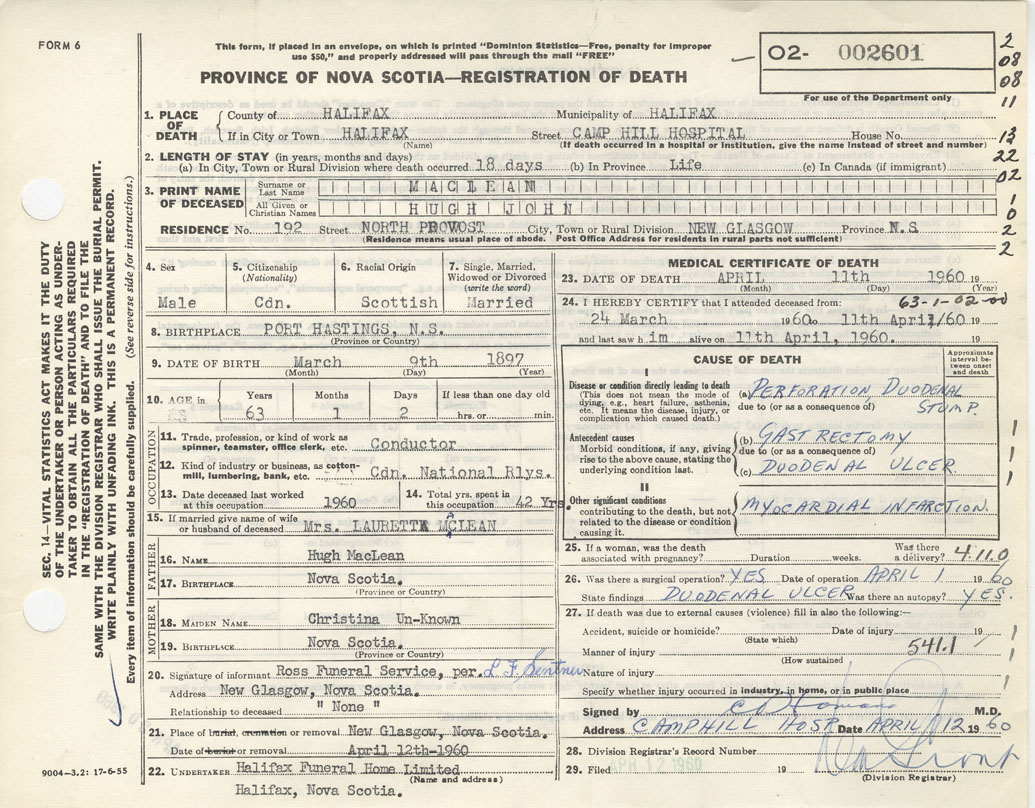 FORM 6
This form, if placed in an envelope, on which is printed "Dominion Statistics—Free, penalty for improper
use $50," and properly addressed will pass through the mail "FREE"
PROVINCE OF NOVA SCOTIA—REGISTRATION OF DEATH
O2- 002601
For use of the Department only
2
08
08
11
13
22
02
1
0
2
2
1. PLACE OF DEATH
County of HALIFAX Municipality of HALIFAX
If in City or Town HALIFAX Street CAMP HILL HOSPITAL House No.
(Name) (If death occurred in a hospital or institution, give the name instead of street and number)
2. LENGTH OF STAY (in years, months and days)
(a) In City, Town or Rural Division where death occurred 18 days (b) In Province Life (c) In Canada (if immigrant)
3. PRINT NAME OF DECEASED
Surname or Last Name MACLEAN
All Given or Christian Names HUGH JOHN
RESIDENCE No. 192 Street NORTH PROVOST City, Town or Rural Division NEW GLASGOW Province N.S.
(Residence means usual place of abode. Post Office Address for residents in rural parts not sufficient)
4. Sex
Male
5. Citizenship (Nationality)
Cdn.
6. Racial Origin
Scottish
7. Single, Married, Widowed or Divorced (write the word)
Married
8. BIRTHPLACE PORT HASTINGS, N.S.
(Province or Country)
9. DATE OF BIRTH March 9th 1897
(Month) (Day) (Year)
10. AGE in
Years Months Days If less than one day old
63 1 2 hrs. or min.
OCCUPATION
11. Trade, profession, or kind of work as
spinner, teamster, office clerk, etc. Conductor
12. Kind of industry or business, as cotton-
mill, lumbering, bank, etc. Cdn. National Rlys.
13. Date deceased last worked
at this occupation 1960
14. Total yrs. spent in
this occupation 42 Yrs.
15. If married give name of wife
or husband of deceased Mrs. LAURETTA McLEAN
A
FATHER
16. NAME Hugh MacLean
17. BIRTHPLACE Nova Scotia.
(Province or Country)
MOTHER
18. MAIDEN NAME Christina Un-Known
19. BIRTHPLACE Nova Scotia.
(Province or Country)
20. Signature of informant Ross Funeral Service, per.
Address New Glasgow, Nova Scotia.
Relationship to deceased " None "
21. Place of burial, cremation or removal New Glasgow, Nova Scotia.
Date of burial or removal April 12th-1960
22. UNDERTAKER Halifax Funeral Home Limited
(Name and address)
Halifax, Nova Scotia.
MEDICAL CERTIFICATE OF DEATH
23. DATE OF DEATH APRIL 11th 1960 19
(Month) (Day) (Year)
24. I HEREBY CERTIFY that I attended deceased from: 63-1-02-00
24 March 1960 to 11th April/60 19
and last saw him alive on 11th April, 1960. 19
CAUSE OF DEATH
Approximate interval between onset and death
I
Disease or condition directly leading to death
(This does not mean the mode of
dying, e.g., heart failure, asthenia,
etc. It means the disease, injury, or
complication which caused death.)
(a) PERFORATION, DUODENAL
due to (or as a consequence of) STUMP.
Antecedent causes
Morbid conditions, if any, giving
rise to the above cause, stating the
underlying condition last.
(b) GASTRECTOMY
due to (or as a consequence of)
(c) DUODENAL ULCER.
II
Other significant conditions
contributing to the death, but not
related to the disease or condition
causing it.
MYOCARDIAL INFARCTION.
25. If a woman, was the death
associated with pregnancy? Duration weeks. Was there a delivery? 4.11.0
26. Was there a surgical operation? YES Date of operation APRIL 1 1960
State findings DUODENAL ULCER Was there an autopsy? YES.
27. If death was due to external causes (violence) fill in also the following:—
Accident, suicide or homicide? Date of injury 19
(State which)
Manner of injury 541.1
(How sustained)
Nature of injury
Specify whether injury occurred in industry, in home, or in public place
Signed by M.D.
Address CAMPHILL HOSP. Date APRIL 12 1960
28. Division Registrar's Record Number
29. Filed APR 12 1960 19
(Division Registrar)
SEC. 14—VITAL STATISTICS ACT MAKES IT THE DUTY
OF THE UNDERTAKER OR PERSON ACTING AS UNDER-
TAKER TO OBTAIN ALL THE PARTICULARS REQUIRED
IN THE "REGISTRATION OF DEATH" AND TO FILE THE
SAME WITH THE DIVISION REGISTRAR WHO SHALL ISSUE THE BURIAL PERMIT.
WRITE PLAINLY WITH UNFADING INK. THIS IS A PERMANENT RECORD.
Every item of information should be carefully supplied. (See reverse side for instructions.)
9004—3.2: 17-6-55